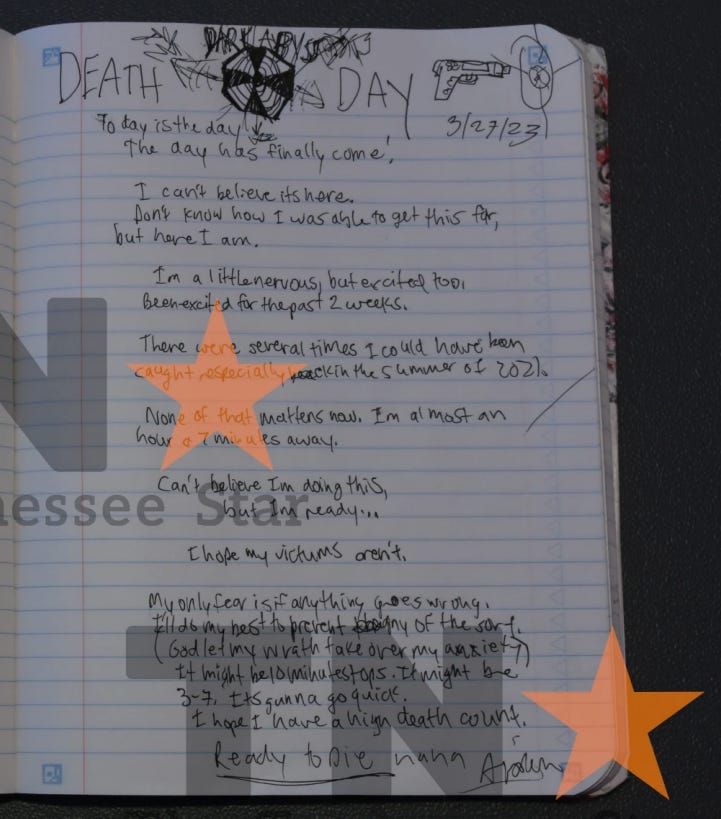 DEATH DAY
3/27/23
Today is the day
The day has finally come!
I can't believe its here.
Don't know how I was able to get this far,
but here I am.
I'm a little nervous, but excited too.
Been excited for the past 2 weeks.
There were several times I could have been
caught especially back in the summer of 2021.
None of that matters now. I'm almost an
hour 7 minutes away.
Can't believe I'm doing this,
but I'm ready...
I hope my victums aren't.
My only fear is if anything goes wrong.
I'll do my best to prevent any of the sort.
(God let my wrath take over my anxiety)
It might be 10 minutes tops. It might be
3-7. Its gunna go quick.
I hope I have a high death count.
Ready to Die haha
N
nessee Star
TN